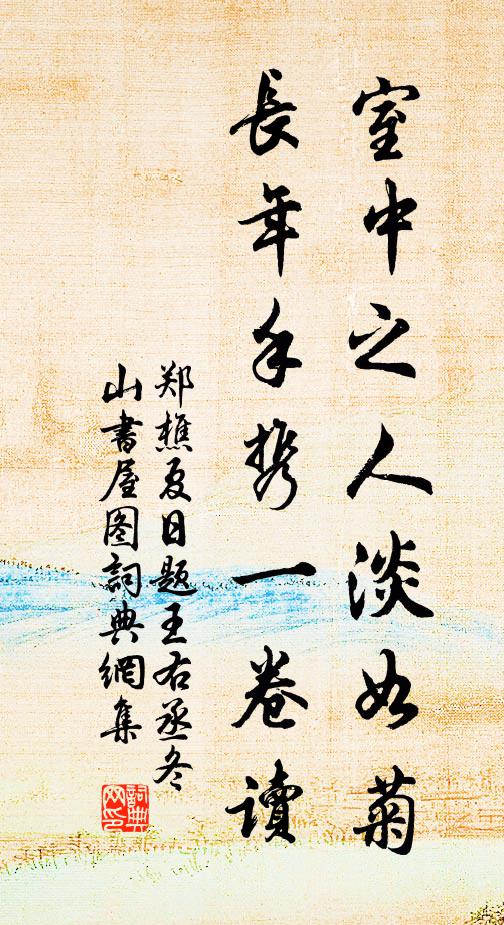 室中之人淡如菊
長年手携一卷读
郑樵夏日题王右丞冬
山書屋图詞典網集
詞典网印